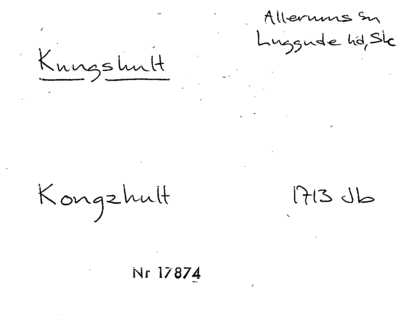 Allerums sn
Luggude hd, Sk
Kungshult
Kongzhult
1713 Jb
Nr 17874